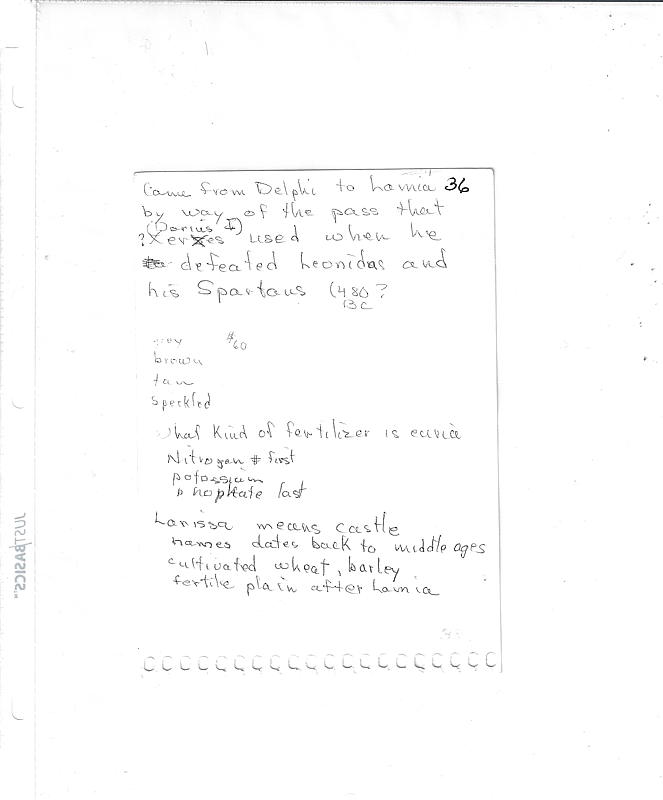 Came from Delphi to Lamia 36
by way of the pass that
(Darius I)
? Xerxes used when he
defeated Leonidas and
his Spartans (480 ?
BC
grey $60
brown
tan
speckled
What kind of fertilizer is
Nitrogen # first
potossium
phophate last
Larissa means castle
names dates back to middle ages
cultivated wheat, barley
fertile plain after Lamia
JUST BASICS